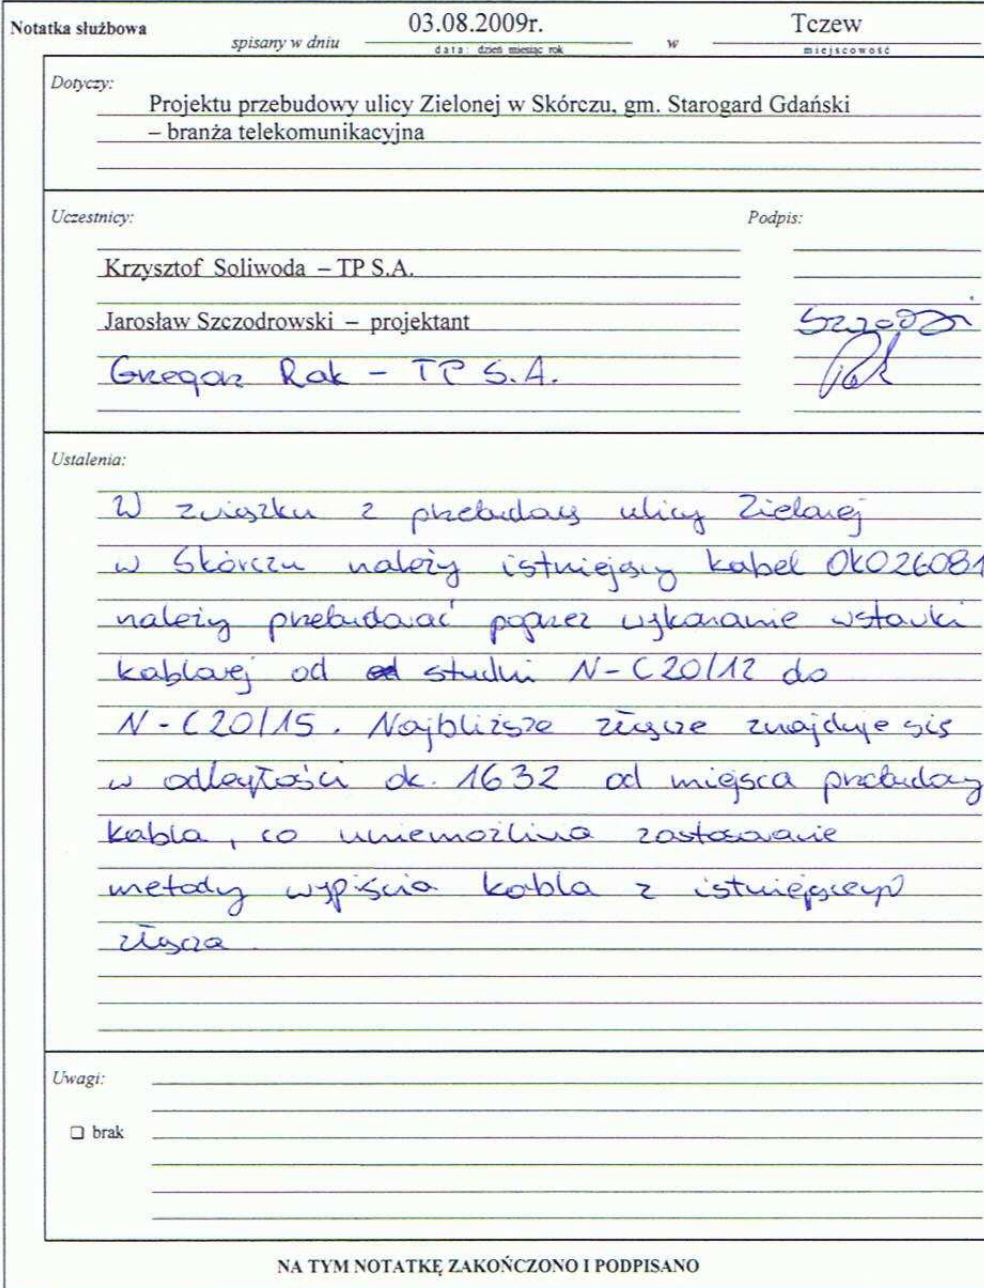 Notatka służbowa
spisany w dniu 03.08.2009r. w Tczew
data: dzień miesiąc rok miejscowość
Dotyczy:
Projektu przebudowy ulicy Zielonej w Skórczu, gm. Starogard Gdański
– branża telekomunikacyjna
Uczestnicy: Podpis:
Krzysztof Soliwoda – TP S.A.
Jarosław Szczodrowski – projektant
Grzegorz Rak – TP S.A. Rak
Ustalenia:
W związku z przebudową ulicy Zielonej
w Skórczu należy istniejący kabel OKO26081
należy przebudować poprzez wykonanie wstawki
kablowej od studni N-C20/12 do
N-C20/15. Najbliższe złącze znajduje się
w odległości ok. 1632 od miejsca przebudowy
kabla, co uniemożliwia zastosowanie
metody wypięcia kabla z istniejącego
złącza
Uwagi:
❏ brak
NA TYM NOTATKĘ ZAKOŃCZONO I PODPISANO